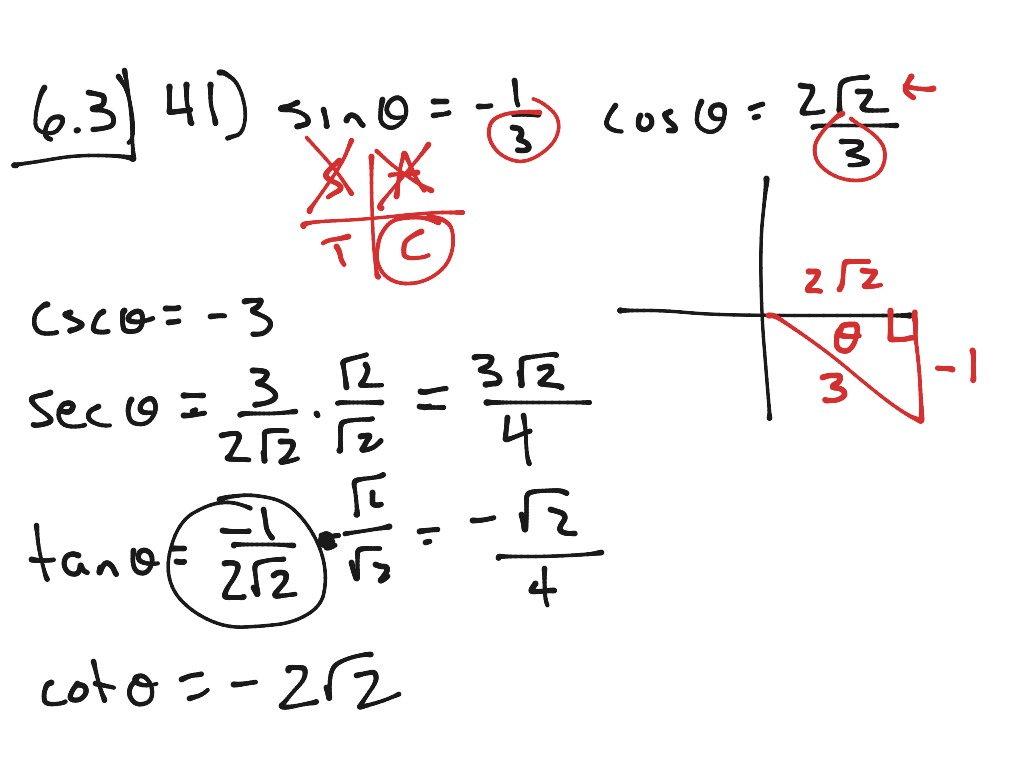 6.3) 41) sinθ = -1/3 cosθ = 2√2/3 ←
S A
T C
2√2
θ
3 -1
cscθ = -3
secθ = 3/2√2 · √2/√2 = 3√2/4
tanθ = -1/2√2 · √2/√2 = -√2/4
cotθ = -2√2